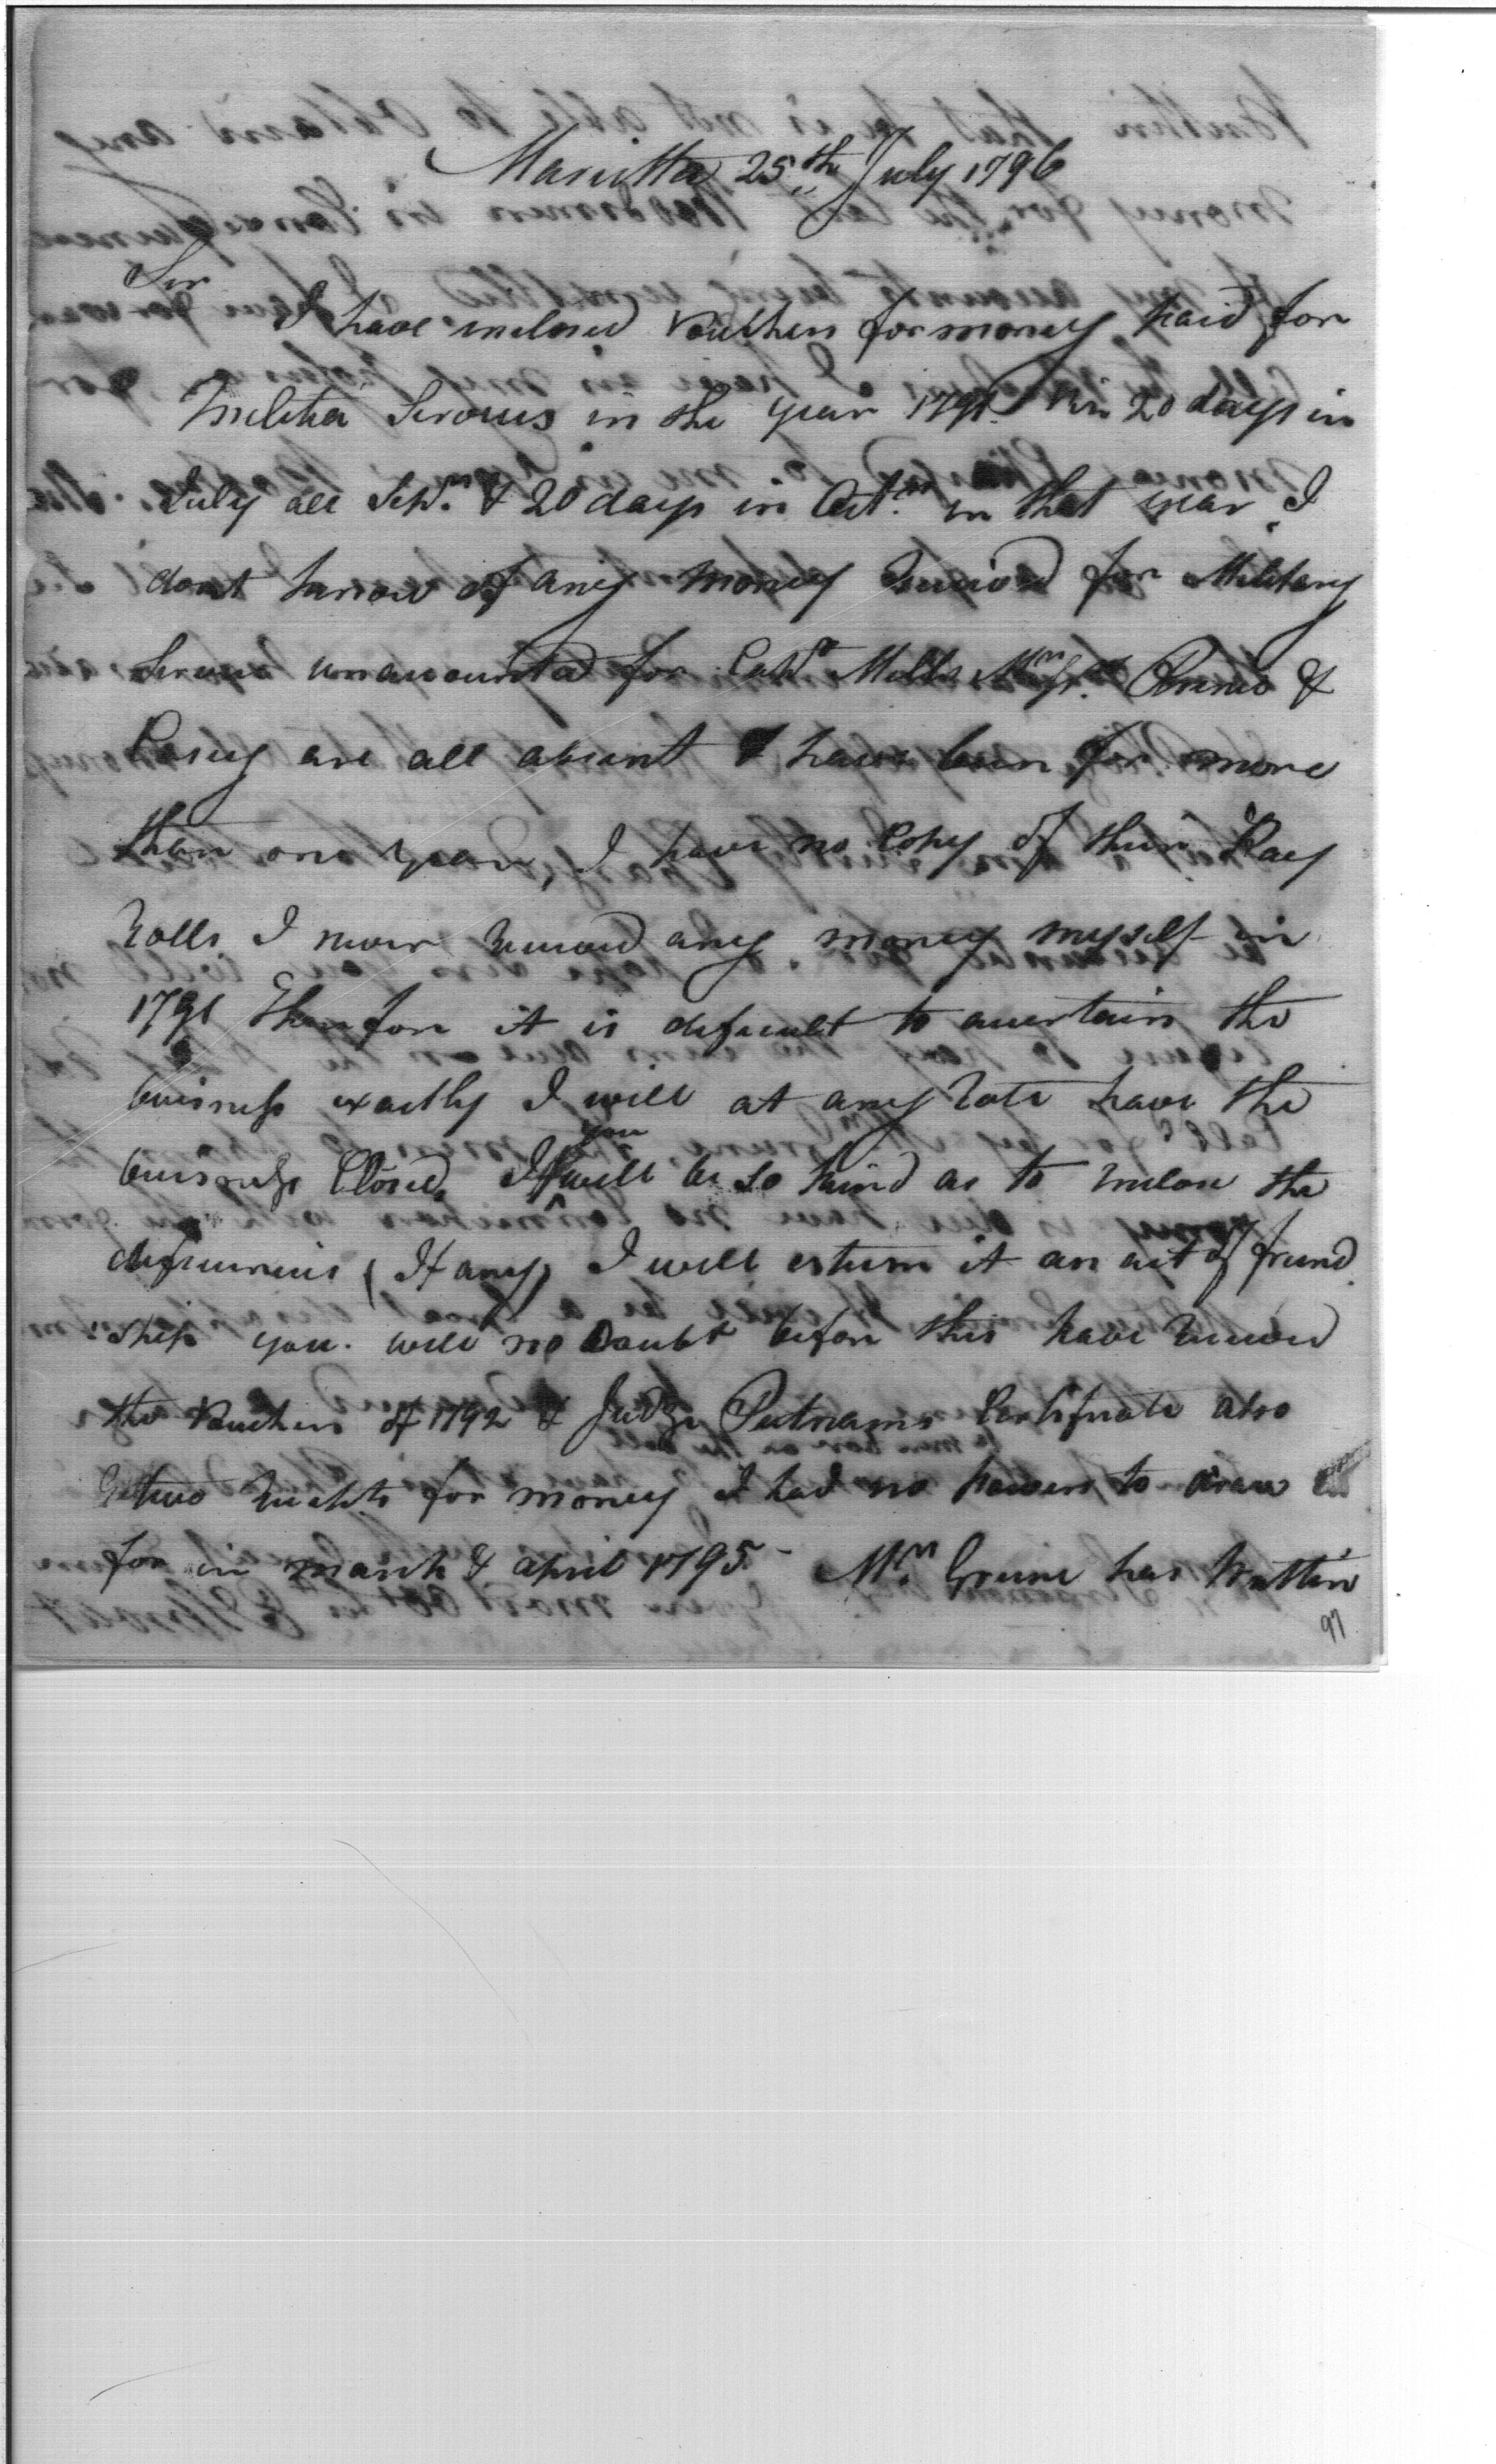 Marietta 25th July 1796
Sir
I have inclosed Vouchers for money paid for
Militia Services in the year 1791. viz 20 days in
July all Sepr. & 20 days in Octr. in that year, I
dont know of any money Received for Military
Service unaccounted for Capt Mills Mrs.
& are all absent & have been for more
than one year, I have no Copy of their Pay
Rolls I never Received any money myself in
1791 Therefore it is dificult to ascertain the
buisness exactly I will at any Rate have the
buisness Closed, If you will be so kind as to inclose the
difurences (If any) I will esteem it an act of friend
ship you will no Doubt before this have Received
the Vouchers of 1792 & Judge Putnams Certificate also
two for money I had no powers to draw
for in march & april 1795 - Mr. Greene has Written
97